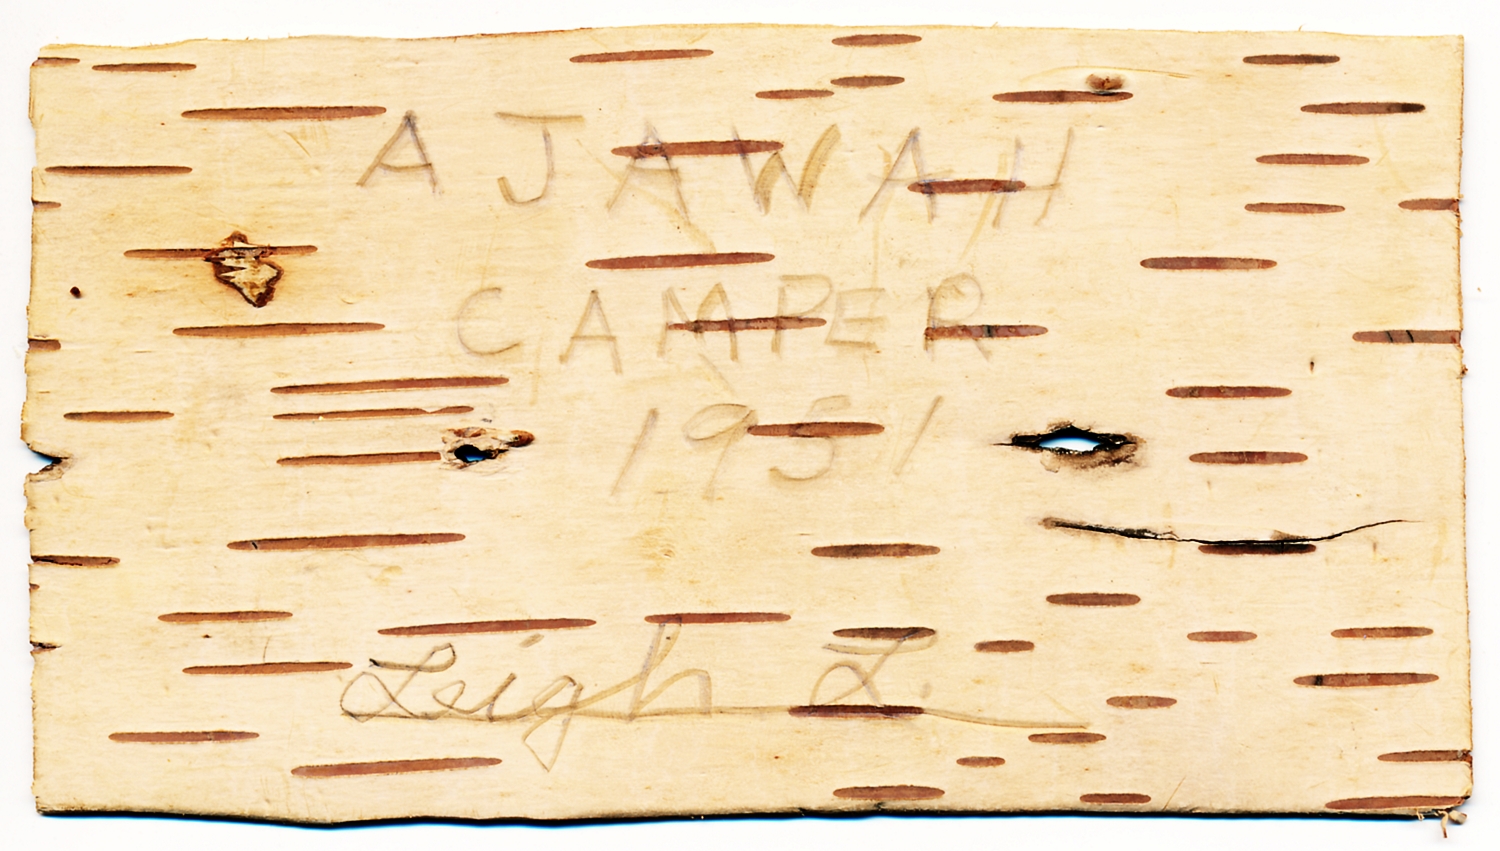 AJAWAH
CAMPER
1951
Leigh L.